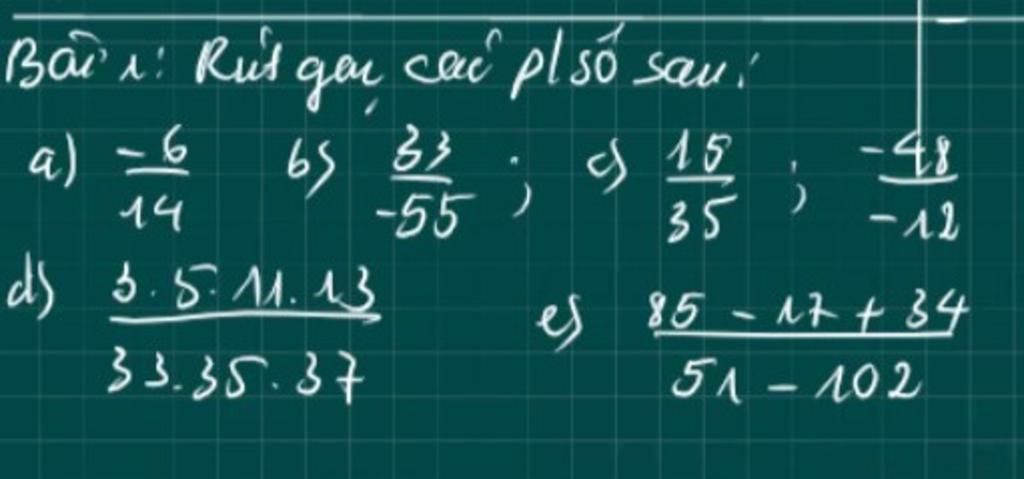 Bài 1: Rút gọn các p/số sau:
a) -6/14 b) 33/-55 ; c) 15/35 ; -48/-12
d) 3.5.11.13/33.35.37 e) 85 - 17 + 34/51 - 102